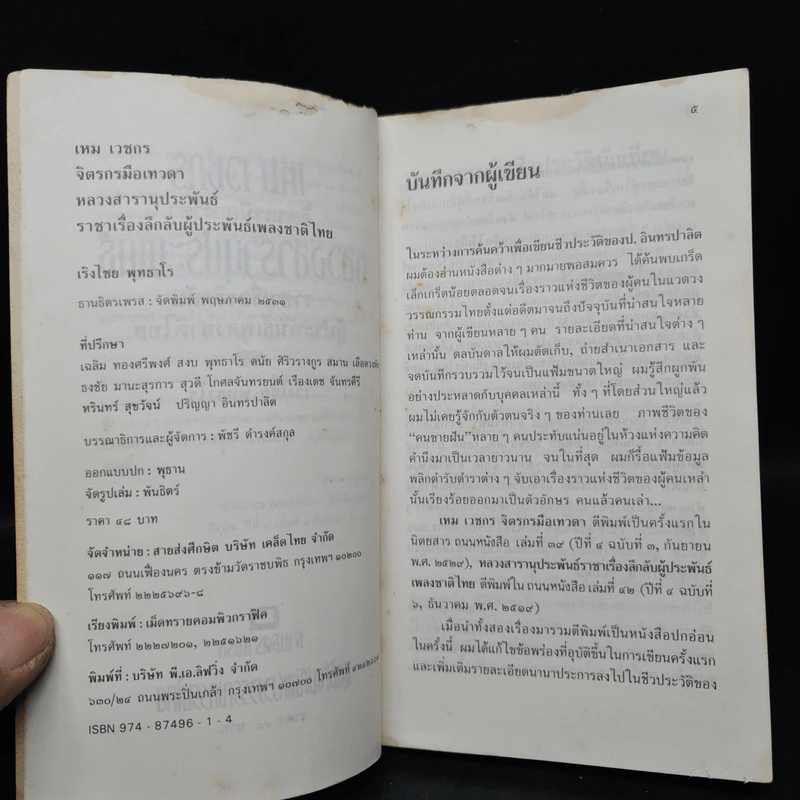 เหม เวชกร
จิตรกรมือเทวดา
หลวงสารานุประพันธ์
ราชาเรื่องลึกลับผู้ประพันธ์เพลงชาติไทย
เริงไชย พุทธาโร
ธานธิตรเพรส : จัดพิมพ์ พฤษภาคม ๒๕๓๑
ที่ปรึกษา
เฉลิม ทองศรีพงศ์ สงบ พุทธาโร ดนัย ศิริวรางกูร สมาน
ธงชัย มานะสุรการ สุวดี โกศลจันทรยนต์ เรืองเดช จันทรคีรี
หรินทร์ สุขวัจน์ ปริญญา อินทรปาลิต
บรรณาธิการและผู้จัดการ : พัชรี ดำรงค์สกุล
ออกแบบปก : พุธาน
จัดรูปเล่ม : พันธิตร์
ราคา ๔๘ บาท
จัดจำหน่าย : สายส่งศึกษิต บริษัท เคล็ดไทย จำกัด
๑๑๗ ถนนเฟื่องนคร ตรงข้ามวัดราชบพิธ กรุงเทพฯ ๑๐๒๐๐
โทรศัพท์ ๒๒๒๕๖๙๖-๘
เรียงพิมพ์ : เม็ดทรายคอมพิวกราฟิค
โทรศัพท์ ๒๒๒๗๒๐๑, ๒๒๕๑๖๒๑
พิมพ์ที่ : บริษัท พี.เอ.ลิฟวิ่ง จำกัด
๖๓๐/๒๔ ถนนพระปิ่นเกล้า กรุงเทพฯ ๑๐๗๐๐ โทรศัพท์
ISBN 974 - 87496 - 1 - 4
๕
บันทึกจากผู้เขียน
ในระหว่างการค้นคว้าเพื่อเขียนชีวประวัติของป. อินทรปาลิต
ผมต้องอ่านหนังสือต่าง ๆ มากมายพอสมควร ได้ค้นพบเกร็ด
เล็กเกร็ดน้อยตลอดจนเรื่องราวแห่งชีวิตของผู้คนในแวดวง
วรรณกรรมไทยตั้งแต่อดีตมาจนถึงปัจจุบันที่น่าสนใจหลาย
ท่าน จากผู้เขียนหลาย ๆ คน รายละเอียดที่น่าสนใจต่าง ๆ
เหล่านั้น ดลบันดาลให้ผมตัดเก็บ, ถ่ายสำเนาเอกสาร และ
จดบันทึกรวบรวมไว้จนเป็นแฟ้มขนาดใหญ่ ผมรู้สึกผูกพัน
อย่างประหลาดกับบุคคลเหล่านี้ ทั้ง ๆ ที่โดยส่วนใหญ่แล้ว
ผมไม่เคยรู้จักกับตัวตนจริง ๆ ของท่านเลย ภาพชีวิตของ
“คนขายฝัน” หลาย ๆ คนประทับแน่นอยู่ในห้วงแห่งความคิด
คำนึงมาเป็นเวลายาวนาน จนในที่สุด ผมก็รื้อแฟ้มข้อมูล
พลิกตำรับตำราต่าง ๆ จับเอาเรื่องราวแห่งชีวิตของผู้คนเหล่า
นั้นเรียงร้อยออกมาเป็นตัวอักษร คนแล้วคนเล่า...
เหม เวชกร จิตรกรมือเทวดา ตีพิมพ์เป็นครั้งแรกใน
นิตยสาร ถนนหนังสือ เล่มที่ ๓๙ (ปีที่ ๔ ฉบับที่ ๓, กันยายน
พ.ศ. ๒๕๒๙), หลวงสารานุประพันธ์ราชาเรื่องลึกลับผู้ประพันธ์
เพลงชาติไทย ตีพิมพ์ใน ถนนหนังสือ เล่มที่ ๔๒ (ปีที่ ๔ ฉบับที่
๖, ธันวาคม พ.ศ. ๒๕๑๙)
เมื่อนำทั้งสองเรื่องมารวมตีพิมพ์เป็นหนังสือปกอ่อน
ในครั้งนี้ ผมได้แก้ไขข้อพร่องที่อุบัติขึ้นในการเขียนครั้งแรก
และเพิ่มเติมรายละเอียดนานาประการลงไปในชีวประวัติของ